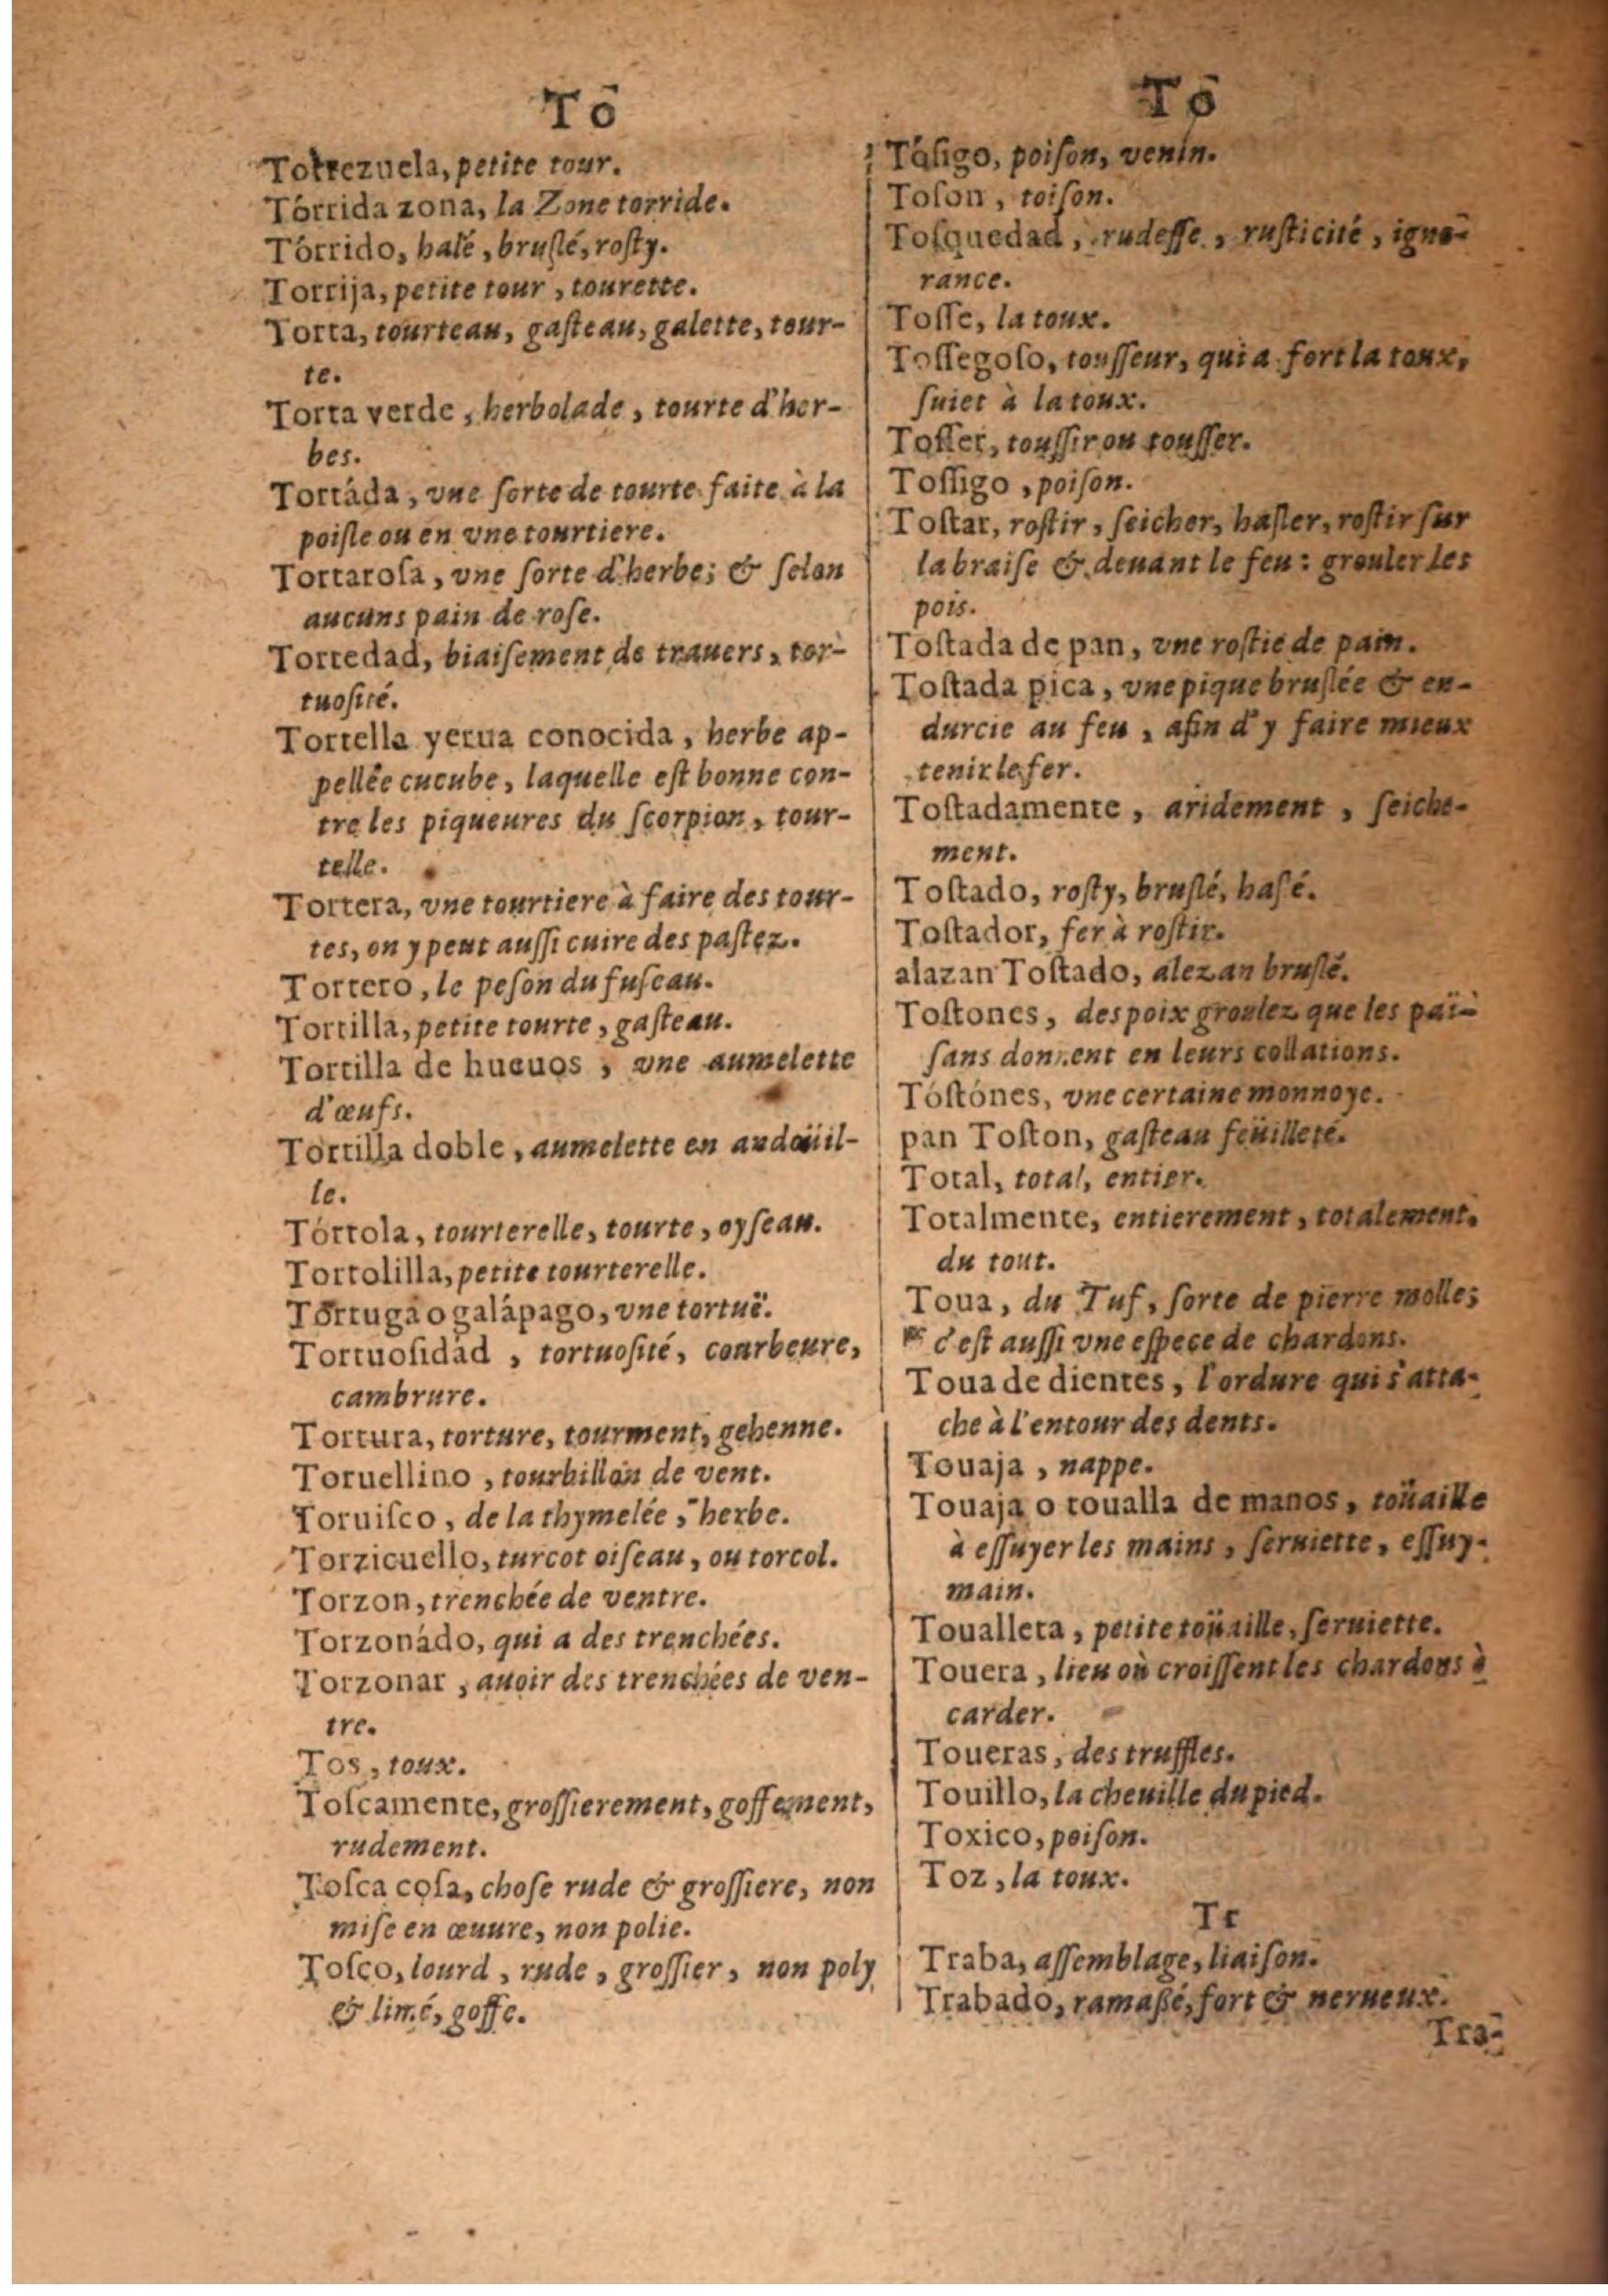 Tō
Torrezuela, petite tour.
Tórrida zona, la Zone torride.
Tórrido, halé, bruſlé, roſty.
Torrija, petite tour, tourette.
Torta, tourteau, gaſteau, galette, tour-
te.
Torta verde, herbolade, tourte d'her-
bes.
Tortáda, vne ſorte de tourte faite à la
poiſle ou en vne tourtiere.
Tortaroſa, vne ſorte d'herbe; & ſelon
aucuns pain de roſe.
Tortedad, biaiſement de trauers, tor-
tuoſité.
Tortella yerua conocida, herbe ap-
pellée cucube, laquelle eſt bonne con-
tre les piqueures du ſcorpion, tour-
telle.
Tortera, vne tourtiere à faire des tour-
tes, on y peut auſſi cuire des paſtez.
Tortero, le peſon du fuſeau.
Tortilla, petite tourte, gaſteau.
Tortilla de hueuos, vne aumelette
d'œufs.
Tortilla doble, aumelette en andoüil-
le.
Tórtola, tourterelle, tourte, oyſeau.
Tortolilla, petite tourterelle.
Tortuga o galápago, vne tortuë.
Tortuoſidad, tortuoſité, courbeure,
cambrure.
Tortura, torture, tourment, gehenne.
Toruellino, tourbillon de vent.
Toruiſco, de la thymelée, herbe.
Torzicuello, turcot oiſeau, ou torcol.
Torzon, trenchée de ventre.
Torzonádo, qui a des trenchées.
Torzonar, auoir des trenchées de ven-
tre.
Tos, toux.
Toſcamente, groſſierement, goffement,
rudement.
Toſca coſa, choſe rude & groſſiere, non
miſe en œuure, non polie.
Toſco, lourd, rude, groſſier, non poly
& limé, goffe.
Tō
Tóſigo, poiſon, venin.
Toſon, toiſon.
Toſquedad, rudeſſe, ruſticité, igno-
rance.
Toſſe, la toux.
Toſſegoſo, touſſeur, qui a fort la toux,
ſuiet à la toux.
Toſſer, touſſir ou touſſer.
Toſſigo, poiſon.
Toſtar, roſtir, ſeicher, haſler, roſtir ſur
la braiſe & deuant le feu: grouler les
pois.
Toſtada de pan, vne roſtie de pain.
Toſtada pica, vne pique bruſlée & en-
durcie au feu, afin d'y faire mieux
tenir le fer.
Toſtadamente, aridement, ſeiche-
ment.
Toſtado, roſty, bruſlé, haſé.
Toſtador, fer à roſtir.
alazan Toſtado, alezan bruſlé.
Toſtones, des poix groulez que les païï-
ſans donnent en leurs collations.
Tóſtónes, vne certaine monnoye.
pan Toſton, gaſteau feüilleté.
Total, total, entier.
Totalmente, entierement, totalement,
du tout.
Toua, du Tuf, ſorte de pierre molle;
c'eſt auſſi vne eſpece de chardons.
Toua de dientes, l'ordure qui s'atta-
che à l'entour des dents.
Touaja, nappe.
Touaja o toualla de manos, toüaille
à eſſuyer les mains, ſeruiette, eſſuy-
main.
Toualleta, petite toüaille, ſeruiette.
Touera, lieu où croiſſent les chardons à
carder.
Toueras, des truffles.
Touillo, la cheuille du pied.
Toxico, poiſon.
Toz, la toux.
Tr
Traba, aſſemblage, liaiſon.
Trabado, ramaßé, fort & nerueux.
Tra-